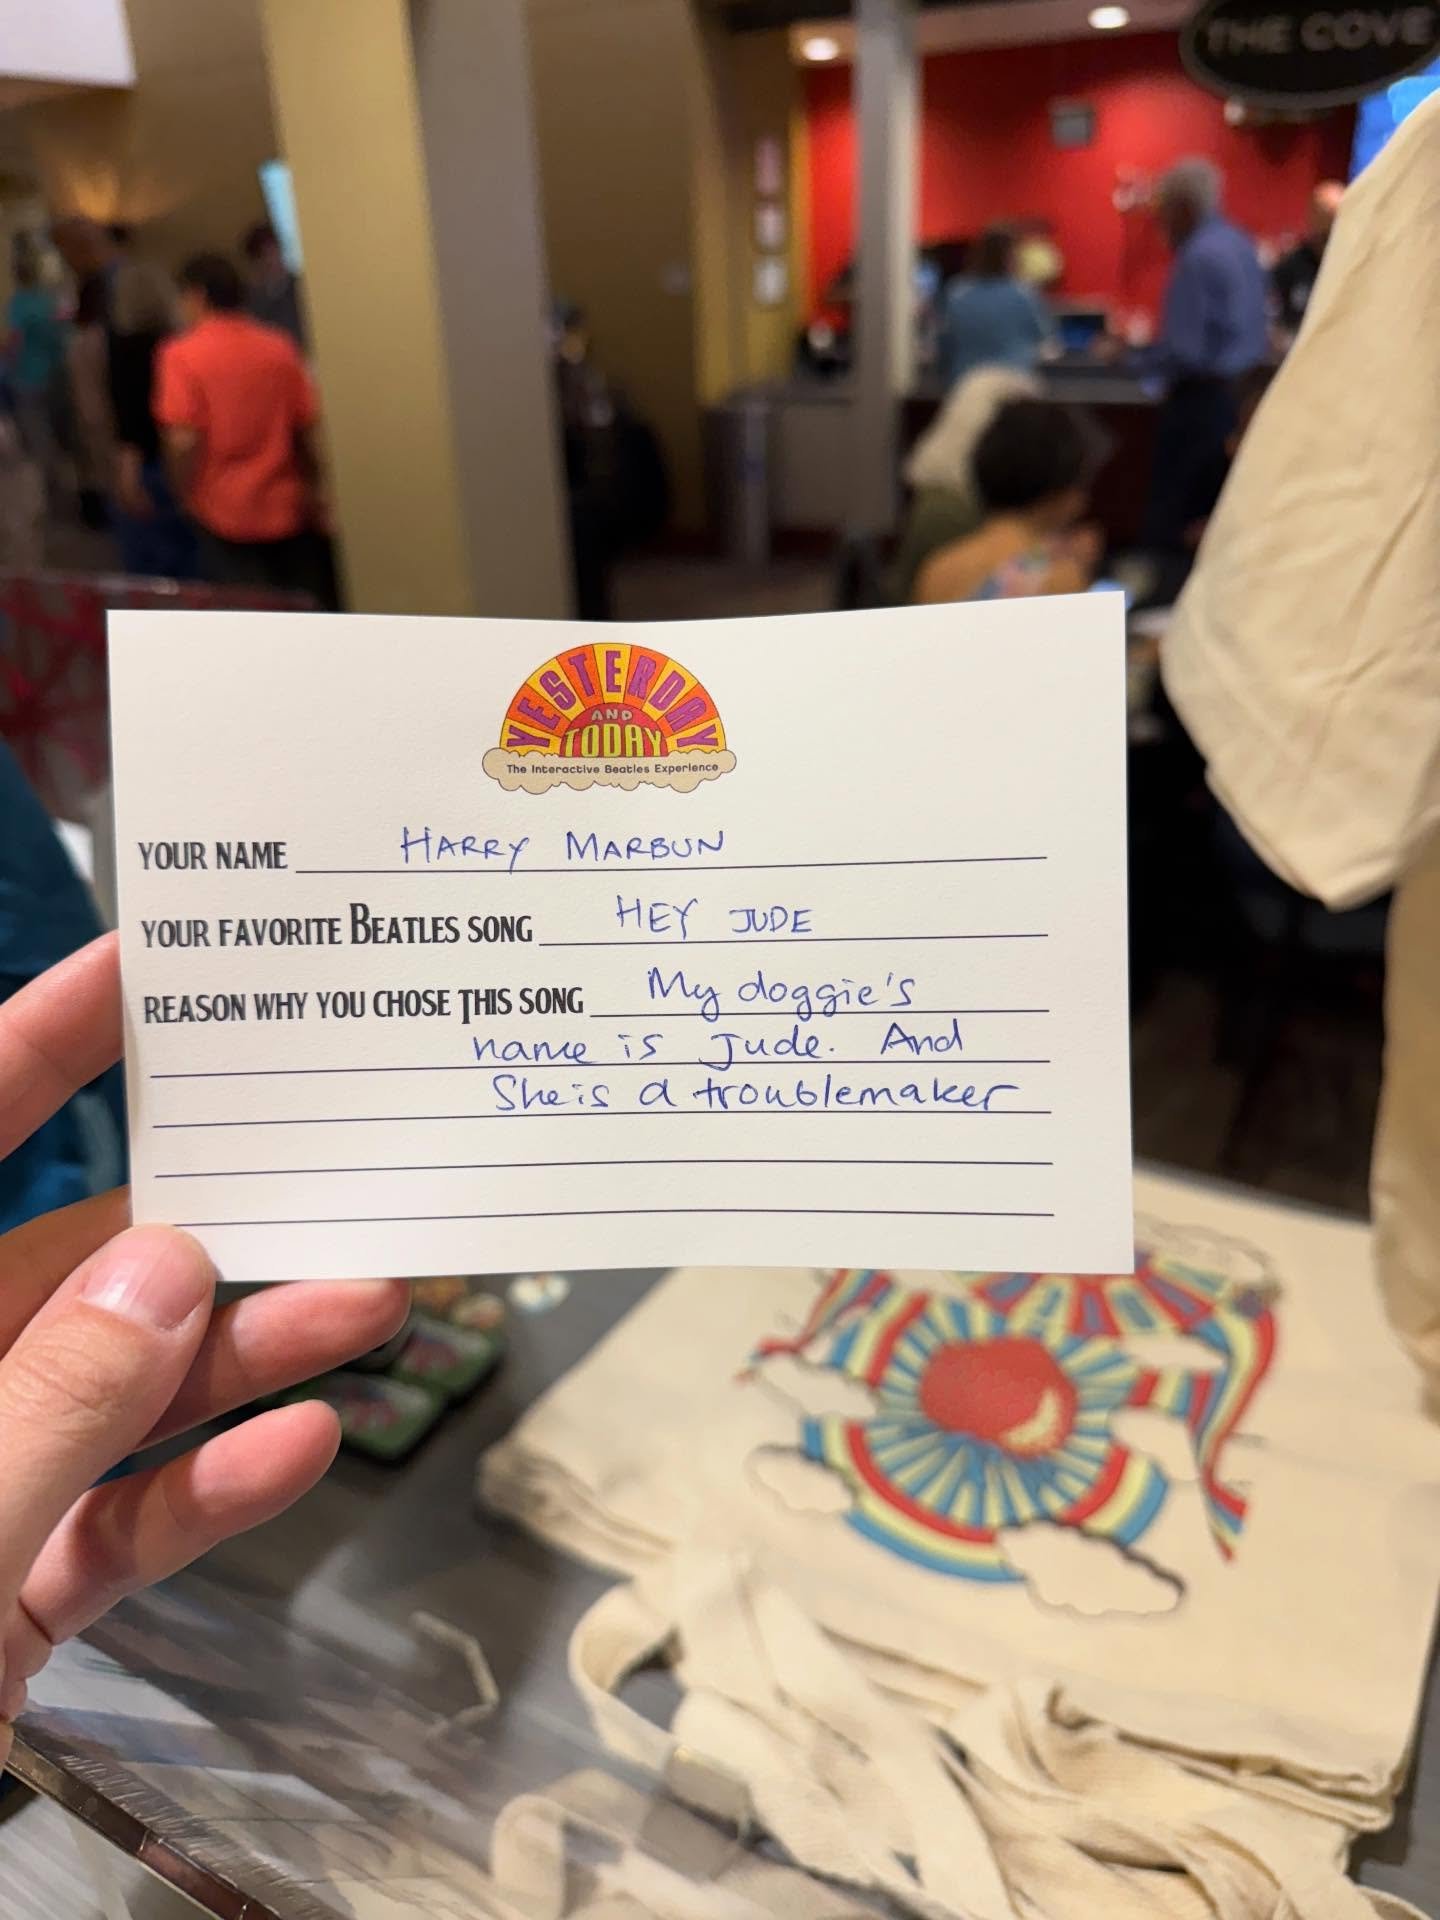 THE COVE
YESTERDAY
AND
TODAY
The Interactive Beatles Experience
YOUR NAME HARRY MARBUN
YOUR FAVORITE BEATLES SONG HEY JUDE
REASON WHY YOU CHOSE THIS SONG My doggie's
name is Jude. And
She is a troublemaker